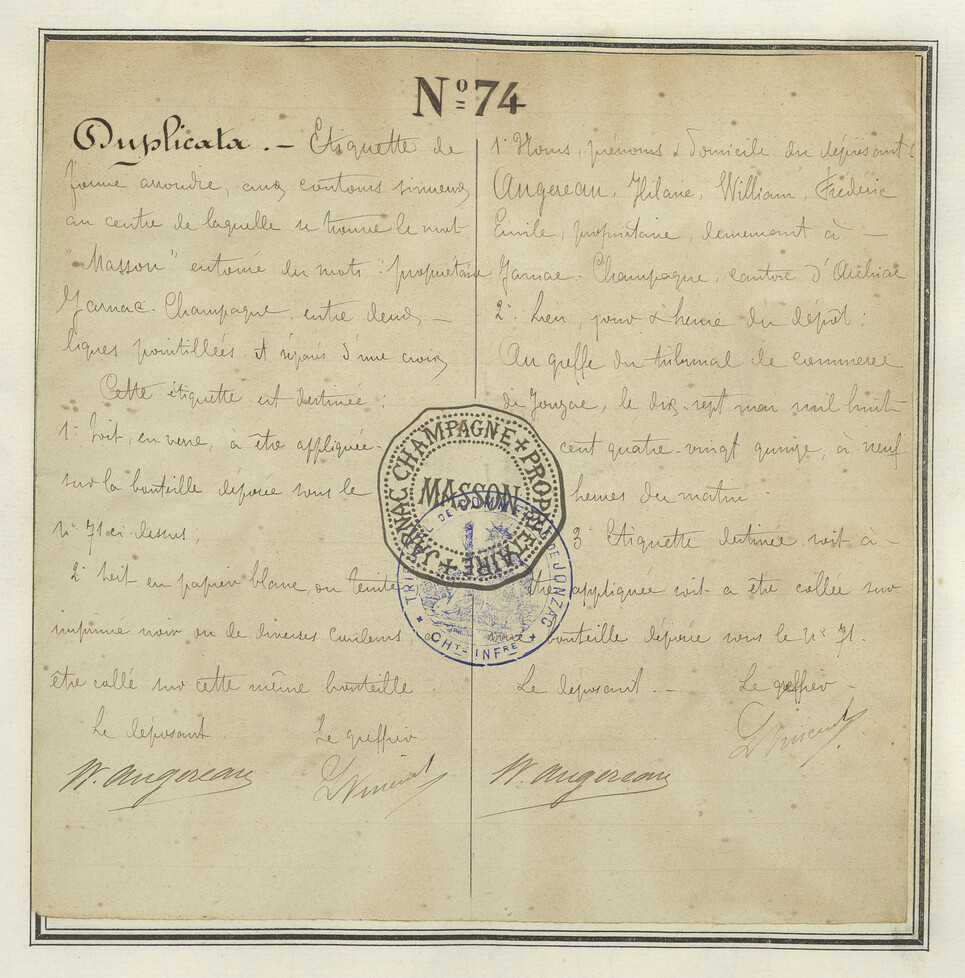 Nº 74
Duplicata. — Etiquette de
forme arrondie, aux contours sinueux
au centre de laquelle se trouve le mot
"Masson" entouré des mots "propriétaire
Jarnac-Champagne, entre deux —
lignes pointillées et séparés d'une croix
Cette étiquette est destinée :
1º Soit, en verre, à être appliquée
sur la bouteille déposée sous le
nº 71 ci-dessus,
2º Soit en papier blanc, ou teinté
imprimé noir ou de diverses couleurs
être collé sur cette même bouteille.
Le déposant. Le greffier
W. Augereau
1º Noms, prénoms & domicile du déposant
Augereau, Hilaire, William, Frédéric
Emile, propriétaire, demeurant à —
Jarnac-Champagne, canton d'Archiac
2º Lieu, jour & heure du dépôt :
Au greffe du tribunal de commerce
de Jonzac, le dix-sept mai mil huit
cent quatre-vingt quinze, à neuf
heures du matin.
3º Etiquette destinée, soit à —
être appliquée soit à être collée sur
une bouteille déposée sous le nº 71.
Le déposant. — Le greffier —
W. Augereau
JARNAC CHAMPAGNE + PROPRIETAIRE +
MASSON
TRIBUNAL DE COMMERCE DE JONZAC
* CHTE INFRE *